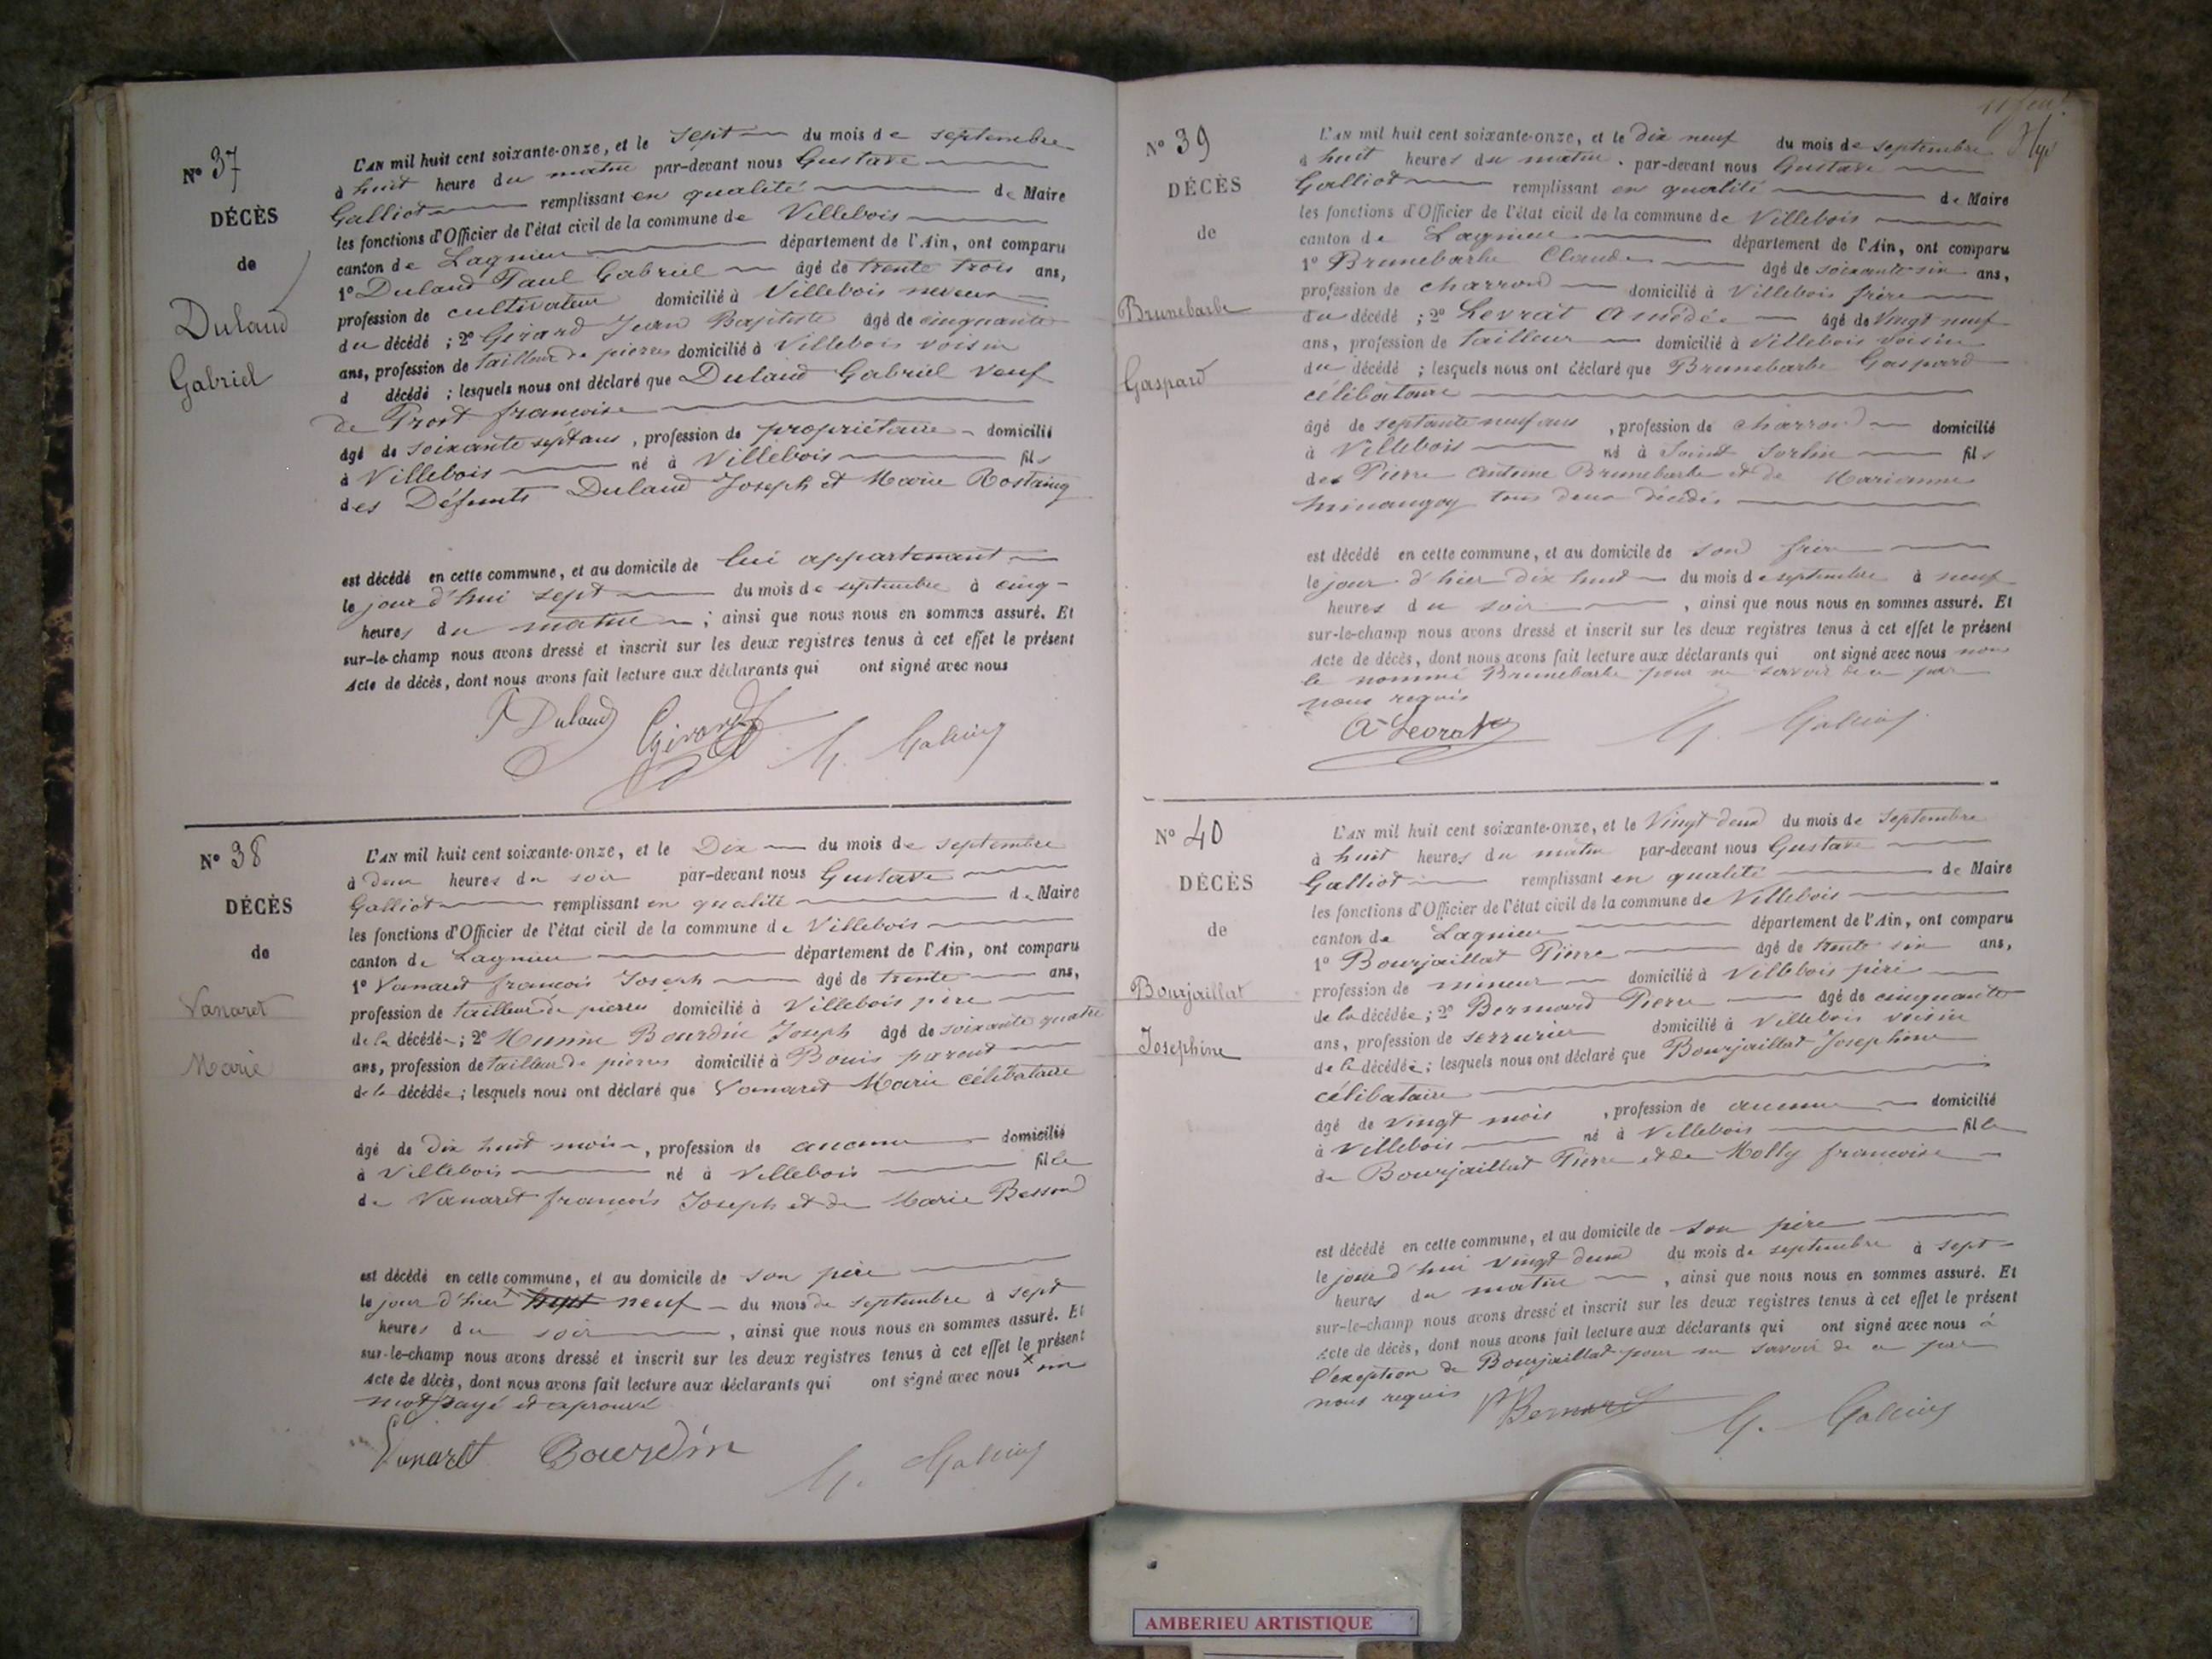 N° 37
DÉCÈS
de
Dulaud
Gabriel
L'AN mil huit cent soixante-onze, et le sept du mois de septembre
à huit heure du matin par-devant nous Gustave
Galliot remplissant en qualité de Maire
les fonctions d'Officier de l'état civil de la commune de Villebois
canton de Lagnieu département de l'Ain, ont comparu
1° Dulaud Paul Gabriel âgé de trente trois ans,
profession de cultivateur domicilié à Villebois neveu
du décédé ; 2° Girard Jean Baptiste âgé de cinquante
ans, profession de tailleur de pierres domicilié à Villebois voisin
d décédé ; lesquels nous ont déclaré que Dulaud Gabriel veuf
de Prost françoise
âgé de soixante sept ans, profession de propriétaire domicilié
à Villebois né à Villebois fils
des Défunts Dulaud Joseph et Marie Rostaing
est décédé en cette commune, et au domicile de lui appartenant
le jour d'hui sept du mois de septembre à cinq
heures du matin ; ainsi que nous nous en sommes assuré. Et
sur-le-champ nous avons dressé et inscrit sur les deux registres tenus à cet effet le présent
Acte de décès, dont nous avons fait lecture aux déclarants qui ont signé avec nous
P Dulaud Girard G. Galliot
N° 38
DÉCÈS
de
Vanaret
Marie
L'AN mil huit cent soixante-onze, et le Dix du mois de septembre
à deux heures du soir par-devant nous Gustave
Galliot remplissant en qualité de Maire
les fonctions d'Officier de l'état civil de la commune de Villebois
canton de Lagnieu département de l'Ain, ont comparu
1° Vanaret françois Joseph âgé de trente ans,
profession de tailleur de pierres domicilié à Villebois père
de la décédée ; 2° Bourdin Joseph âgé de soixante quatre
ans, profession de tailleur de pierres domicilié à Bouis parent
de la décédée ; lesquels nous ont déclaré que Vanaret Marie célibataire
âgé de dix huit mois, profession de aucune domicilié
à Villebois né à Villebois fille
de Vanaret françois Joseph et de Marie Besson
est décédé en cette commune, et au domicile de son père
le jour d'hier neuf du mois de septembre à sept
heures du soir, ainsi que nous nous en sommes assuré. Et
sur-le-champ nous avons dressé et inscrit sur les deux registres tenus à cet effet le présent
Acte de décès, dont nous avons fait lecture aux déclarants qui ont signé avec nous x un
mot rayé et aprouvé
Vanaret Bourdin G. Galliot
N° 39
DÉCÈS
de
Brunebarbe
Gaspard
L'AN mil huit cent soixante-onze, et le dix neuf du mois de septembre
à huit heures du matin. par-devant nous Gustave
Galliot remplissant en qualité de Maire
les fonctions d'Officier de l'état civil de la commune de Villebois
canton de Lagnieu département de l'Ain, ont comparu
1° Brunebarbe Claude âgé de soixante six ans,
profession de charron domicilié à Villebois frère
du décédé ; 2° Levrat Amédée âgé de vingt neuf
ans, profession de tailleur domicilié à Villebois voisin
du décédé ; lesquels nous ont déclaré que Brunebarbe Gaspard
célibataire
âgé de septante neuf ans, profession de charron domicilié
à Villebois né à Saint Sorlin fils
des Pierre Antoine Brunebarbe et de Marianne
tous deux décédés
est décédé en cette commune, et au domicile de son frère
le jour d'hier dix huit du mois de septembre à neuf
heures du soir, ainsi que nous nous en sommes assuré. Et
sur-le-champ nous avons dressé et inscrit sur les deux registres tenus à cet effet le présent
Acte de décès, dont nous avons fait lecture aux déclarants qui ont signé avec nous non
le nommé Brunebarbe pour ne savoir de ce par
nous requis
A Levrat G. Galliot
N° 40
DÉCÈS
de
Bourjaillat
Josephine
L'AN mil huit cent soixante-onze, et le Vingt deux du mois de Septembre
à huit heures du matin par-devant nous Gustave
Galliot remplissant en qualité de Maire
les fonctions d'Officier de l'état civil de la commune de Villebois
canton de Lagnieu département de l'Ain, ont comparu
1° Bourjaillat Pierre âgé de trente six ans,
profession de mineur domicilié à Villebois père
de la décédée ; 2° Bernard Pierre âgé de cinquante
ans, profession de serrurier domicilié à Villebois voisin
de la décédée ; lesquels nous ont déclaré que Bourjaillat Josephine
célibataire
âgé de vingt mois, profession de aucune domicilié
à Villebois né à Villebois fille
de Bourjaillat Pierre et de Molly françoise
est décédé en cette commune, et au domicile de son père
le jour d'hui vingt deux du mois de septembre à sept
heures du matin, ainsi que nous nous en sommes assuré. Et
sur-le-champ nous avons dressé et inscrit sur les deux registres tenus à cet effet le présent
Acte de décès, dont nous avons fait lecture aux déclarants qui ont signé avec nous à
l'exeption de Bourjaillat pour ne savoir de ce par
nous requis P Bernard G. Galliot
AMBERIEU ARTISTIQUE